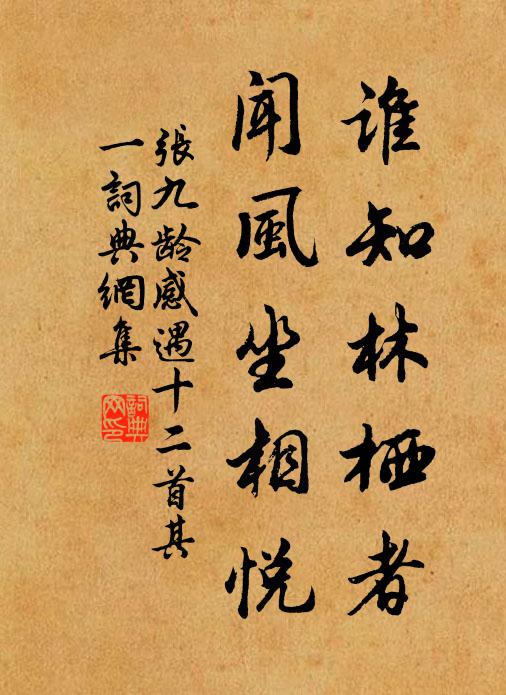 誰知林栖者
聞風坐相悦
張九齡感遇十二首其
一詞典網集
詞典網印